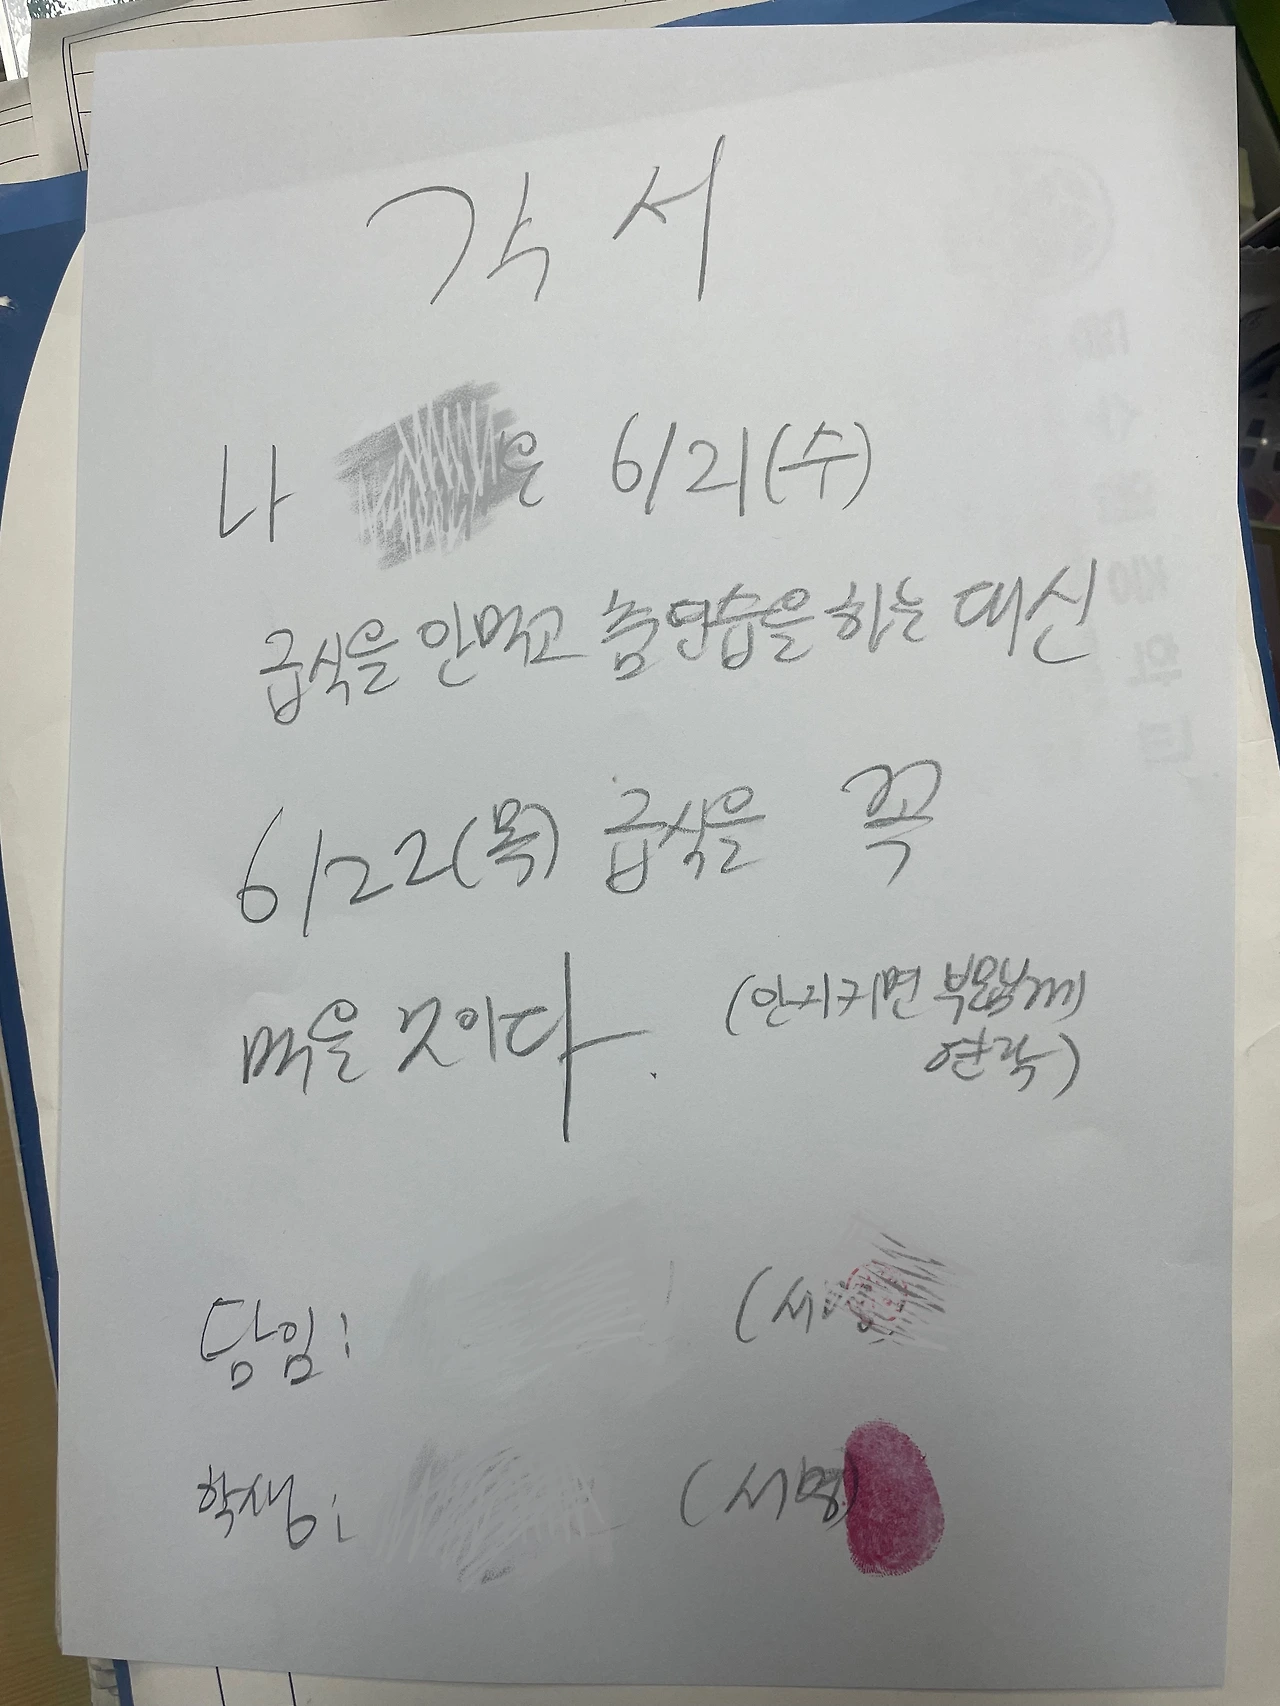 각서
나 은 6/21(수)
급식을 안먹고 춤연습을 하는 대신
6/22(목) 급식을 꼭
먹을 것이다.
(안지키면 부모님께
연락)
담임: (서명
학생: (서명)